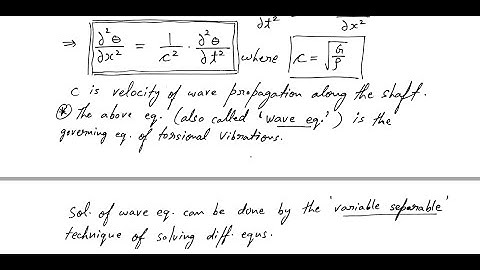 ∂t² ∂x²
⇒ ∂²θ/∂x² = 1/c² · ∂²θ/∂t² where c = √(G/ρ)
c is velocity of wave propagation along the shaft.
⊛ The above eq. (also called 'wave eq.') is the
governing eq. of torsional vibrations.
Sol. of wave eq. can be done by the 'variable separable'
technique of solving diff. eqns.